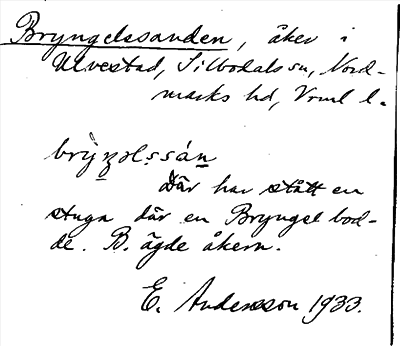 Bryngelssanden, åker i
Ulvestad, Silbodals sn, Nord-
marks hd, Vrml l.
brỳŋəlssánn
Där har stått en
stuga där en Bryngel bod-
de. B. ägde åkern.
E. Andersson 1933.